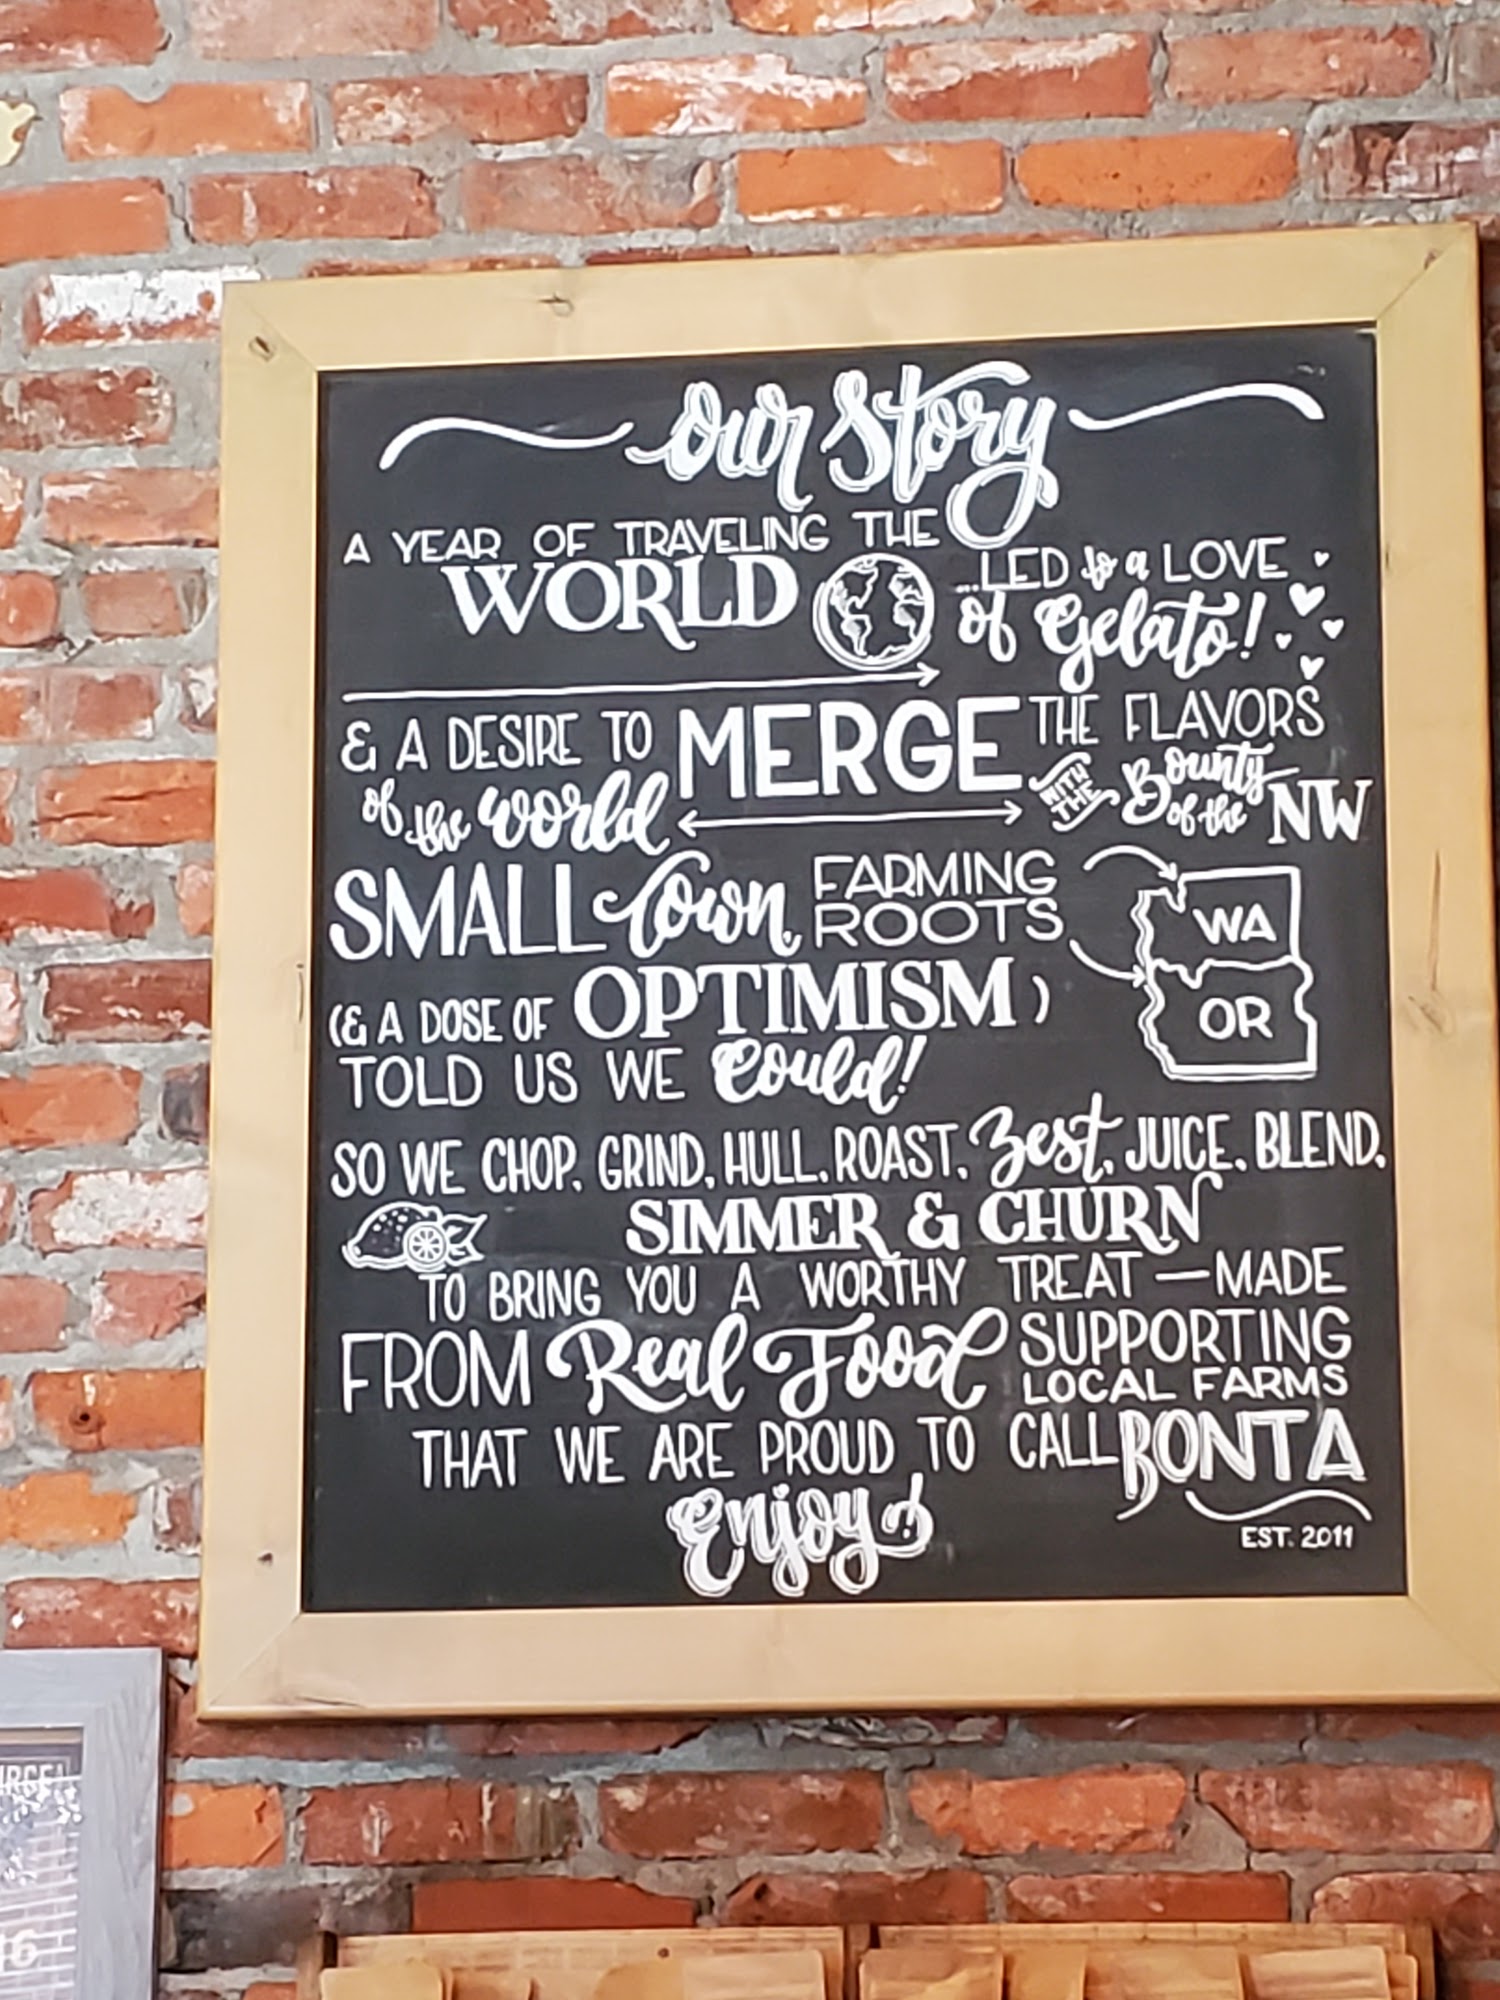 Our Story
A YEAR OF TRAVELING THE
WORLD
...LED to a LOVE
of Gelato!
& A DESIRE TO MERGE THE FLAVORS
of the world
WITH THE Bounty of the NW
SMALL Town, FARMING ROOTS
(& A DOSE OF OPTIMISM)
TOLD US WE Could!
WA
OR
SO WE CHOP, GRIND, HULL, ROAST, Zest, JUICE, BLEND,
SIMMER & CHURN
TO BRING YOU A WORTHY TREAT — MADE
FROM Real Food SUPPORTING
LOCAL FARMS
THAT WE ARE PROUD TO CALL BONTA
Enjoy!
EST. 2011